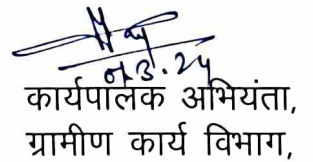 01.3.24
कार्यपालक अभियंता,
ग्रामीण कार्य विभाग,